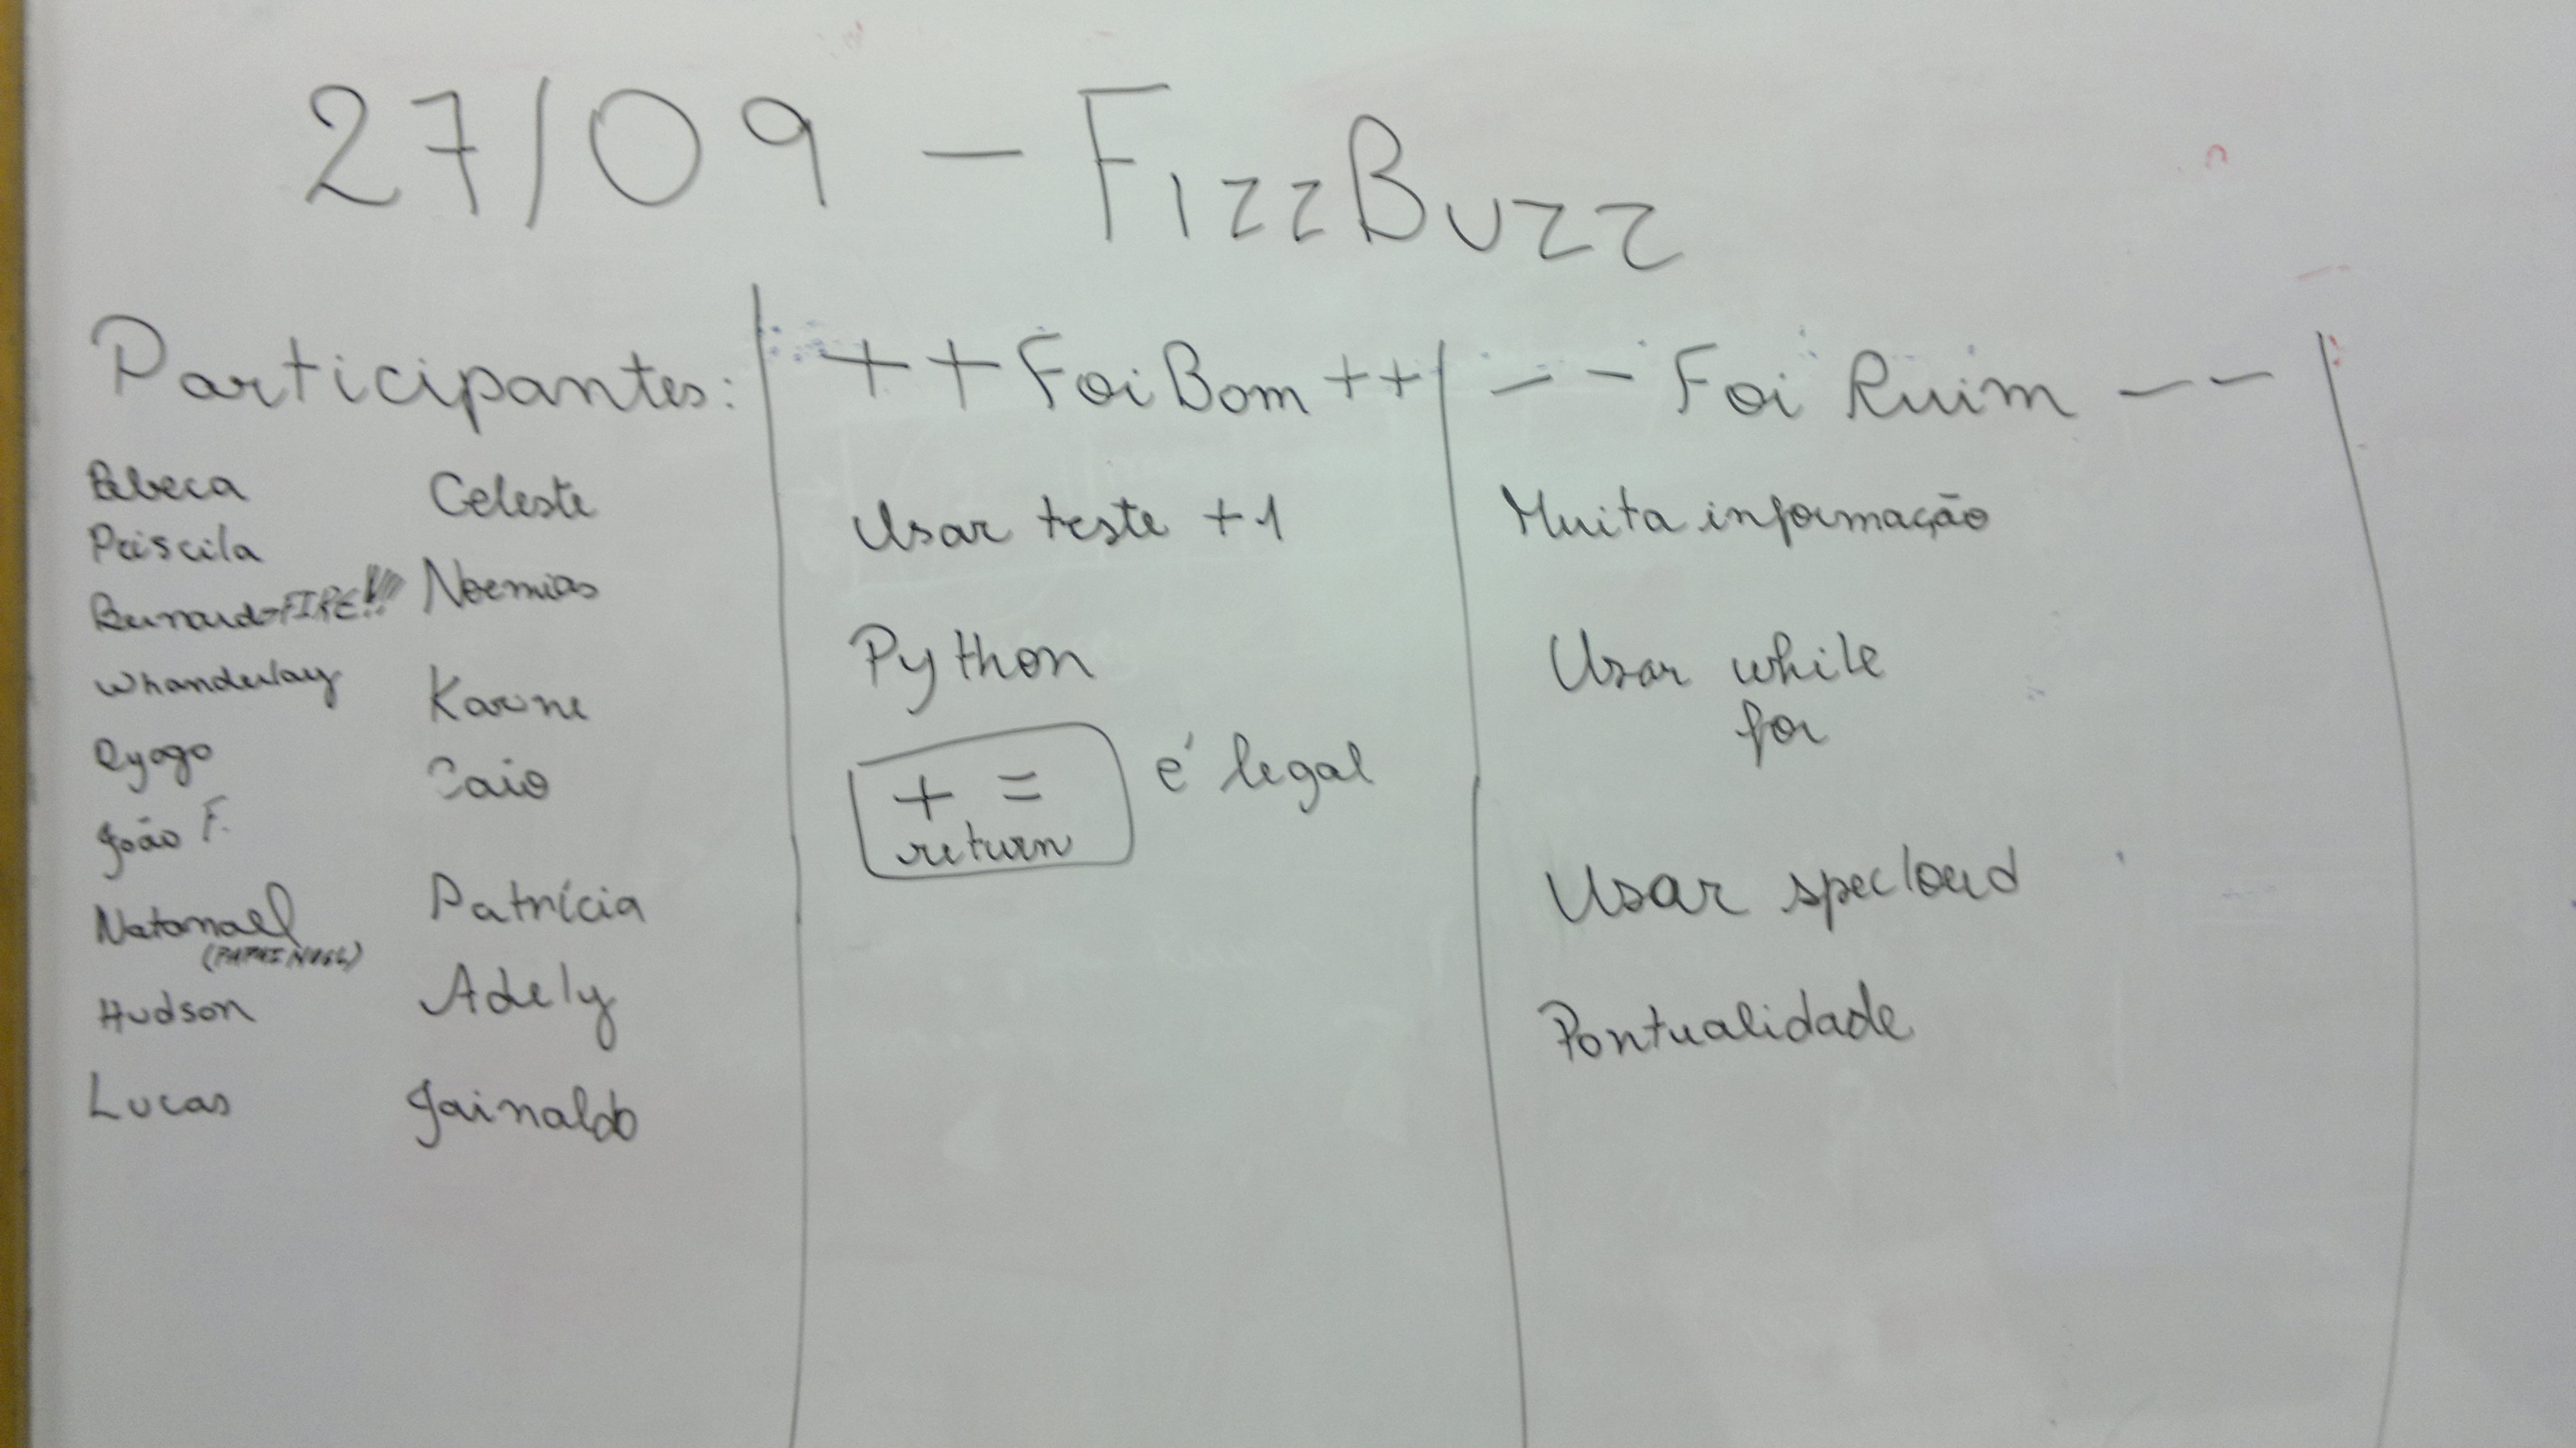 27/09 - FizzBuzz
Participantes:
Rebeca
Priscila
Bernardo-FIRE!!!
Whanderlay
Dyogo
João F.
Natanael
(PAPAI NOEL)
Hudson
Lucas
Celeste
Neemias
Karine
Caio
Patrícia
Adely
Jainaldo
++ Foi Bom ++
Usar teste +1
Python
+ =
return
é legal
-- Foi Ruim --
Muita informação
Usar while
for
Usar specloud
Pontualidade